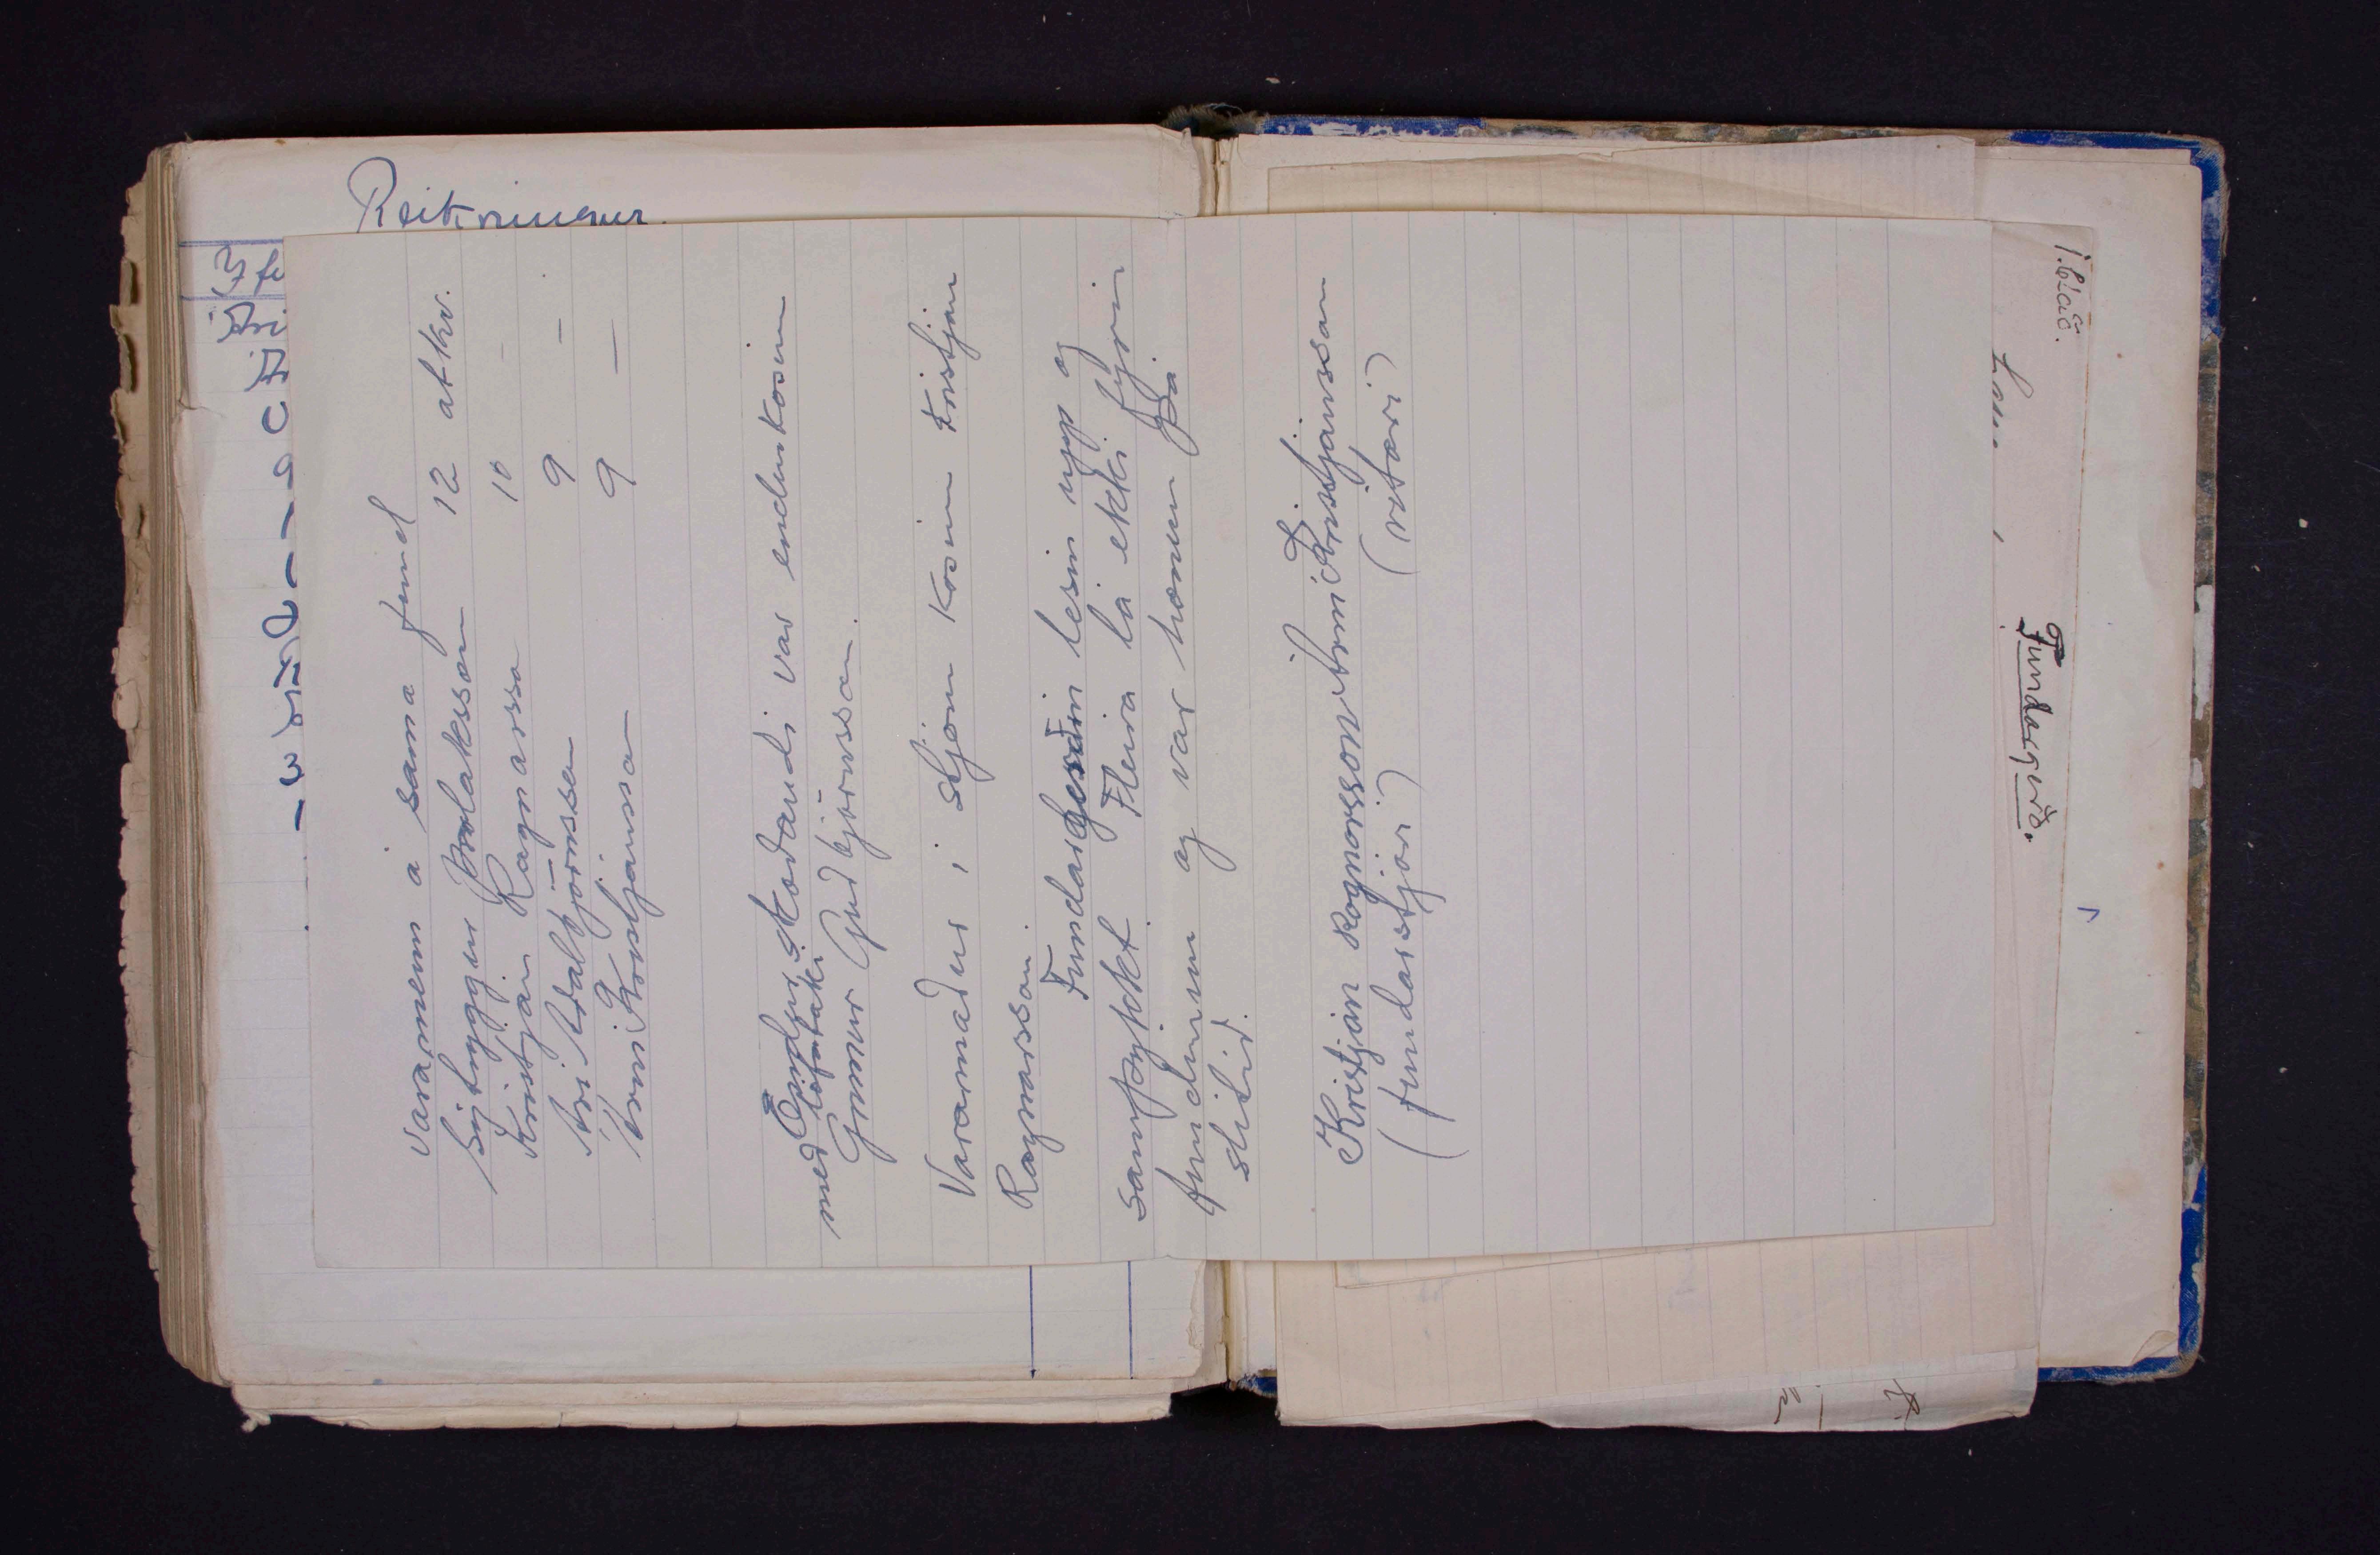 Reikningur.
Yfi
varamenn á sama fund
Sigtryggur Þorláksson 12 atkv.
Kristján Ragnarsso 10 -
Ari Aðalbjörnsson 9 -
Árni Kristjánsson 9 -
Endurskoðandi var endurkosinn
með lófataki
Gunnar Guðbjörnsson.
Varamaður í stjórn kosinn Kristján
Ragnarsson.
Fundargerðin lesin upp og
samþykkt. Fleira lá ekki fyrir
fundinum og var honum þá
slitið.
Kristján Ragnarsson Árni Kristjánsson
(fundarstjóri) (ritari)
1. blað.
Fundargerð.